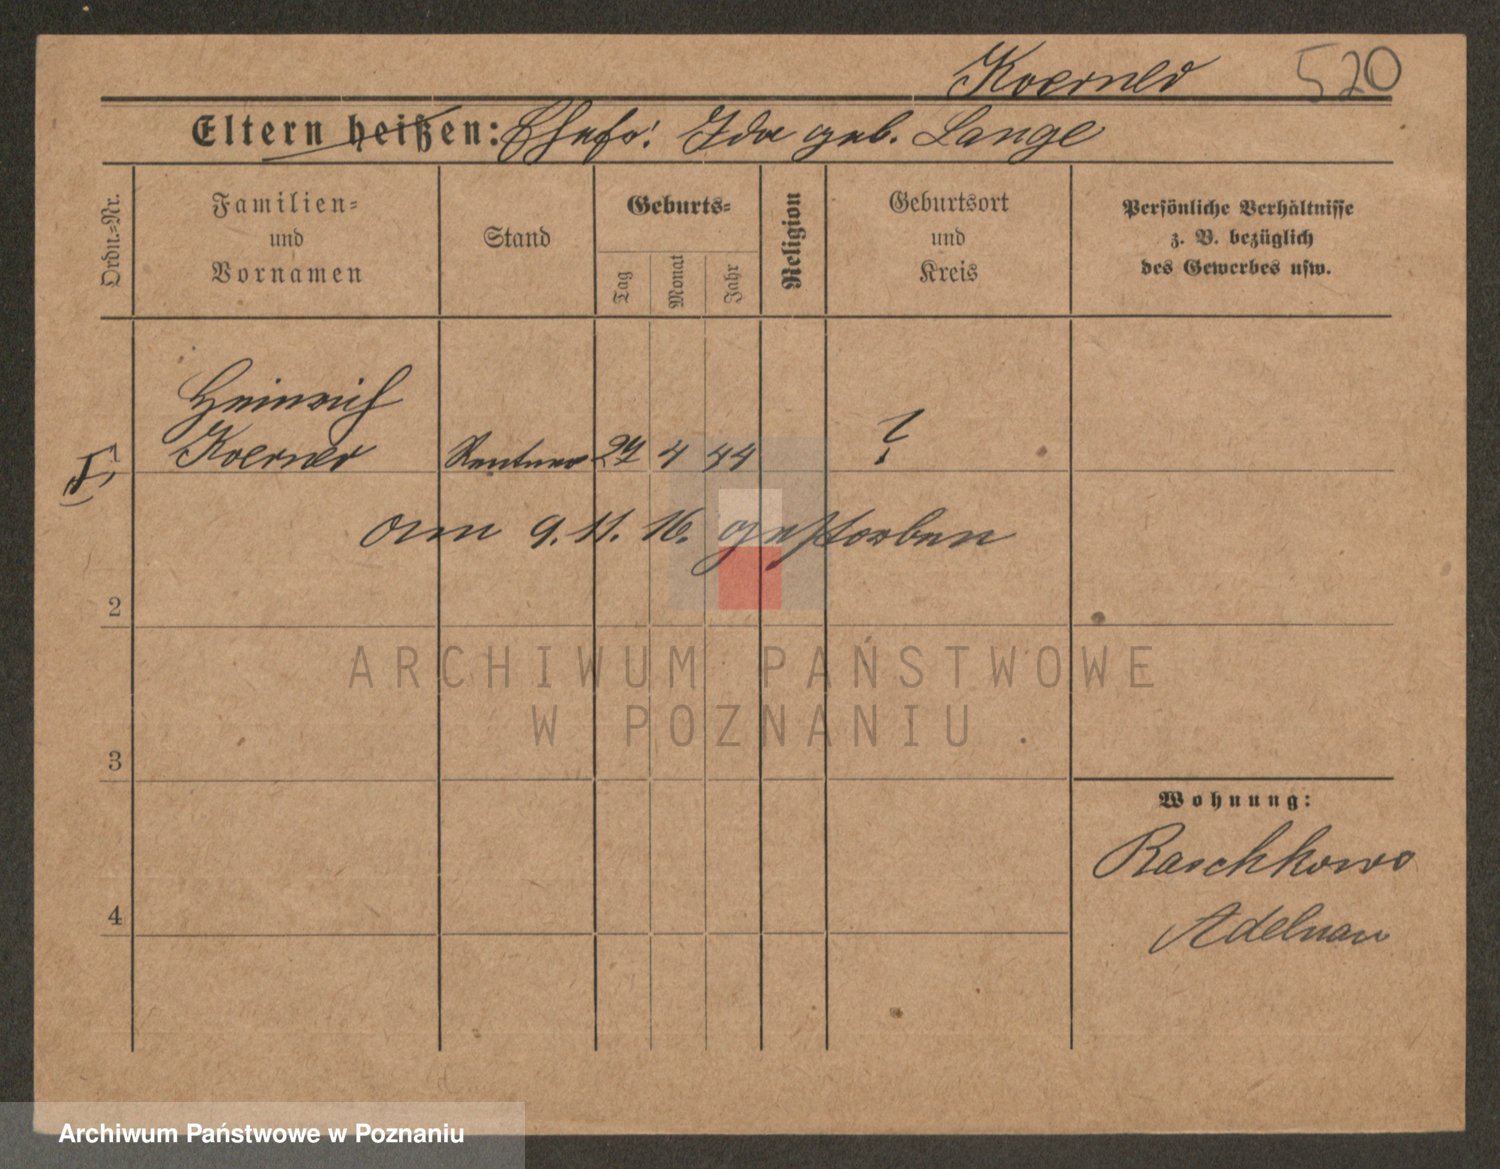 Koerner 520
Eltern heißen: Ehefr: Ida geb. Lange
Ordn.-Nr.
Familien-
und
Vornamen
Stand
Geburts-
Tag
Monat
Jahr
Religion
Geburtsort
und
Kreis
Persönliche Verhältnisse
z. B. bezüglich
des Gewerbes usw.
Heinrich
Koerner Rentner 27 4 44 ?
am 9. 11. 16. gestorben
2
ARCHIWUM PAŃSTWOWE
W POZNANIU
3
Wohnung:
Raschkowo
4
Adelnau
Archiwum Państwowe w Poznaniu